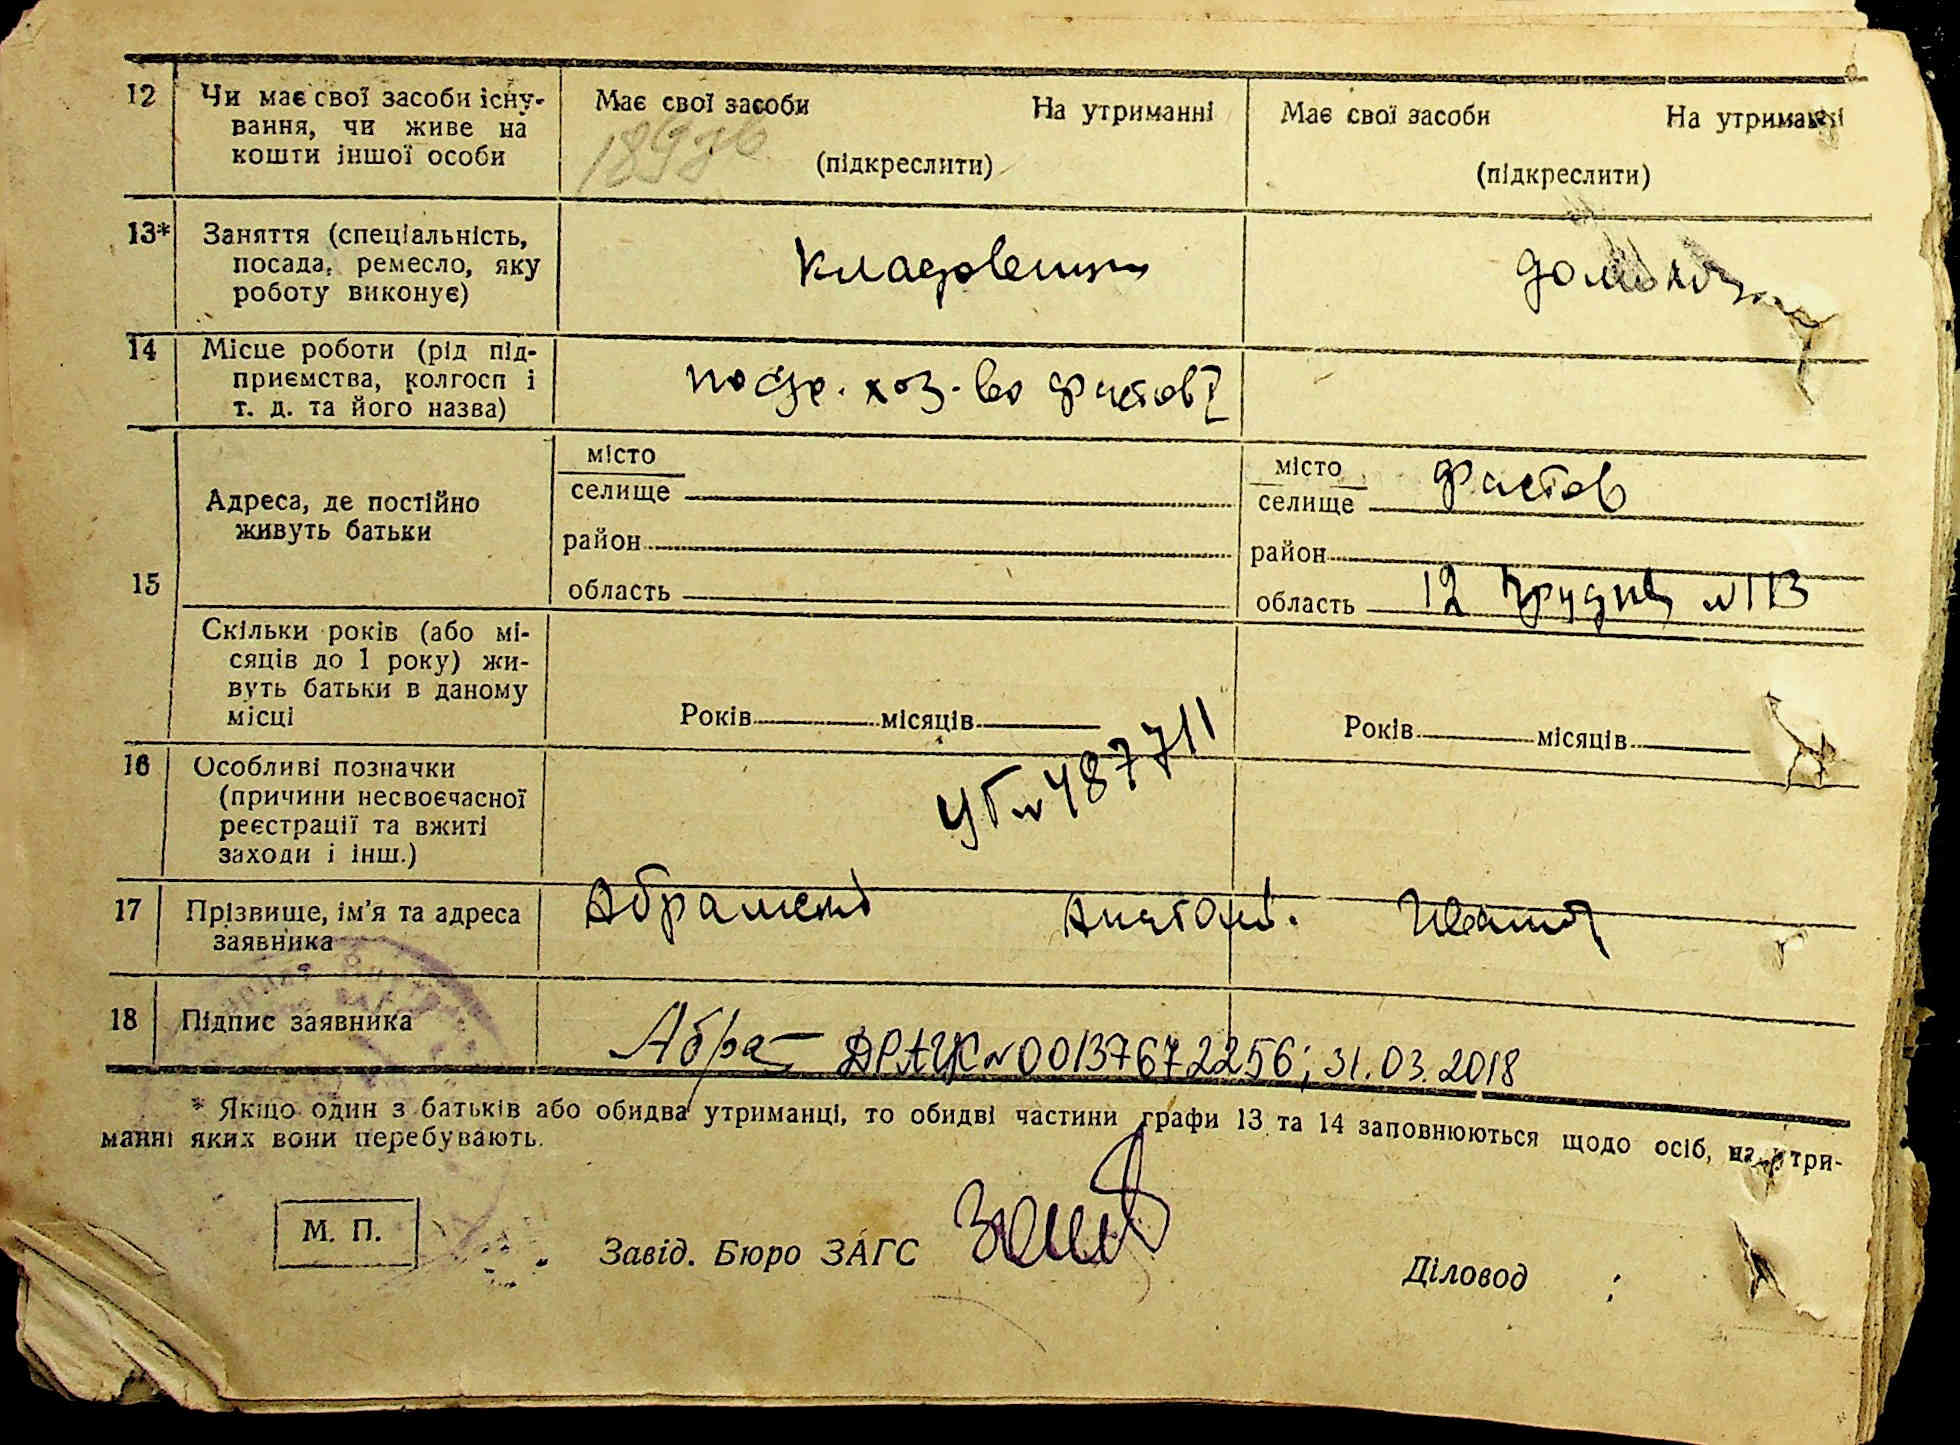 12 Чи має свої засоби існу-
вання, чи живе на
кошти іншої особи
Має свої засоби На утриманні
(підкреслити)
Має свої засоби На утриманні
(підкреслити)
13* Заняття (спеціальність,
посада, ремесло, яку
роботу виконує)
14 Місце роботи (рід під-
приємства, колгосп і
т. д. та його назва)
хоз-во Фастов
15 Адреса, де постійно
живуть батьки
місто
селище
район
область
місто Фастов
селище
район
область 12 №113
Скільки років (або мі-
сяців до 1 року) жи-
вуть батьки в даному
місці
Років місяців
Років місяців
16 Особливі позначки
(причини несвоєчасної
реєстрації та вжиті
заходи і інш.)
УБ№487711
17 Прізвище, ім'я та адреса
заявника
18 Підпис заявника
Абра ДРАЦС №00137672256; 31.03.2018
* Якщо один з батьків або обидва утриманці, то обидві частини графи 13 та 14 заповнюються щодо осіб, на утри-
манні яких вони перебувають.
М. П.
Завід. Бюро ЗАГС
Діловод